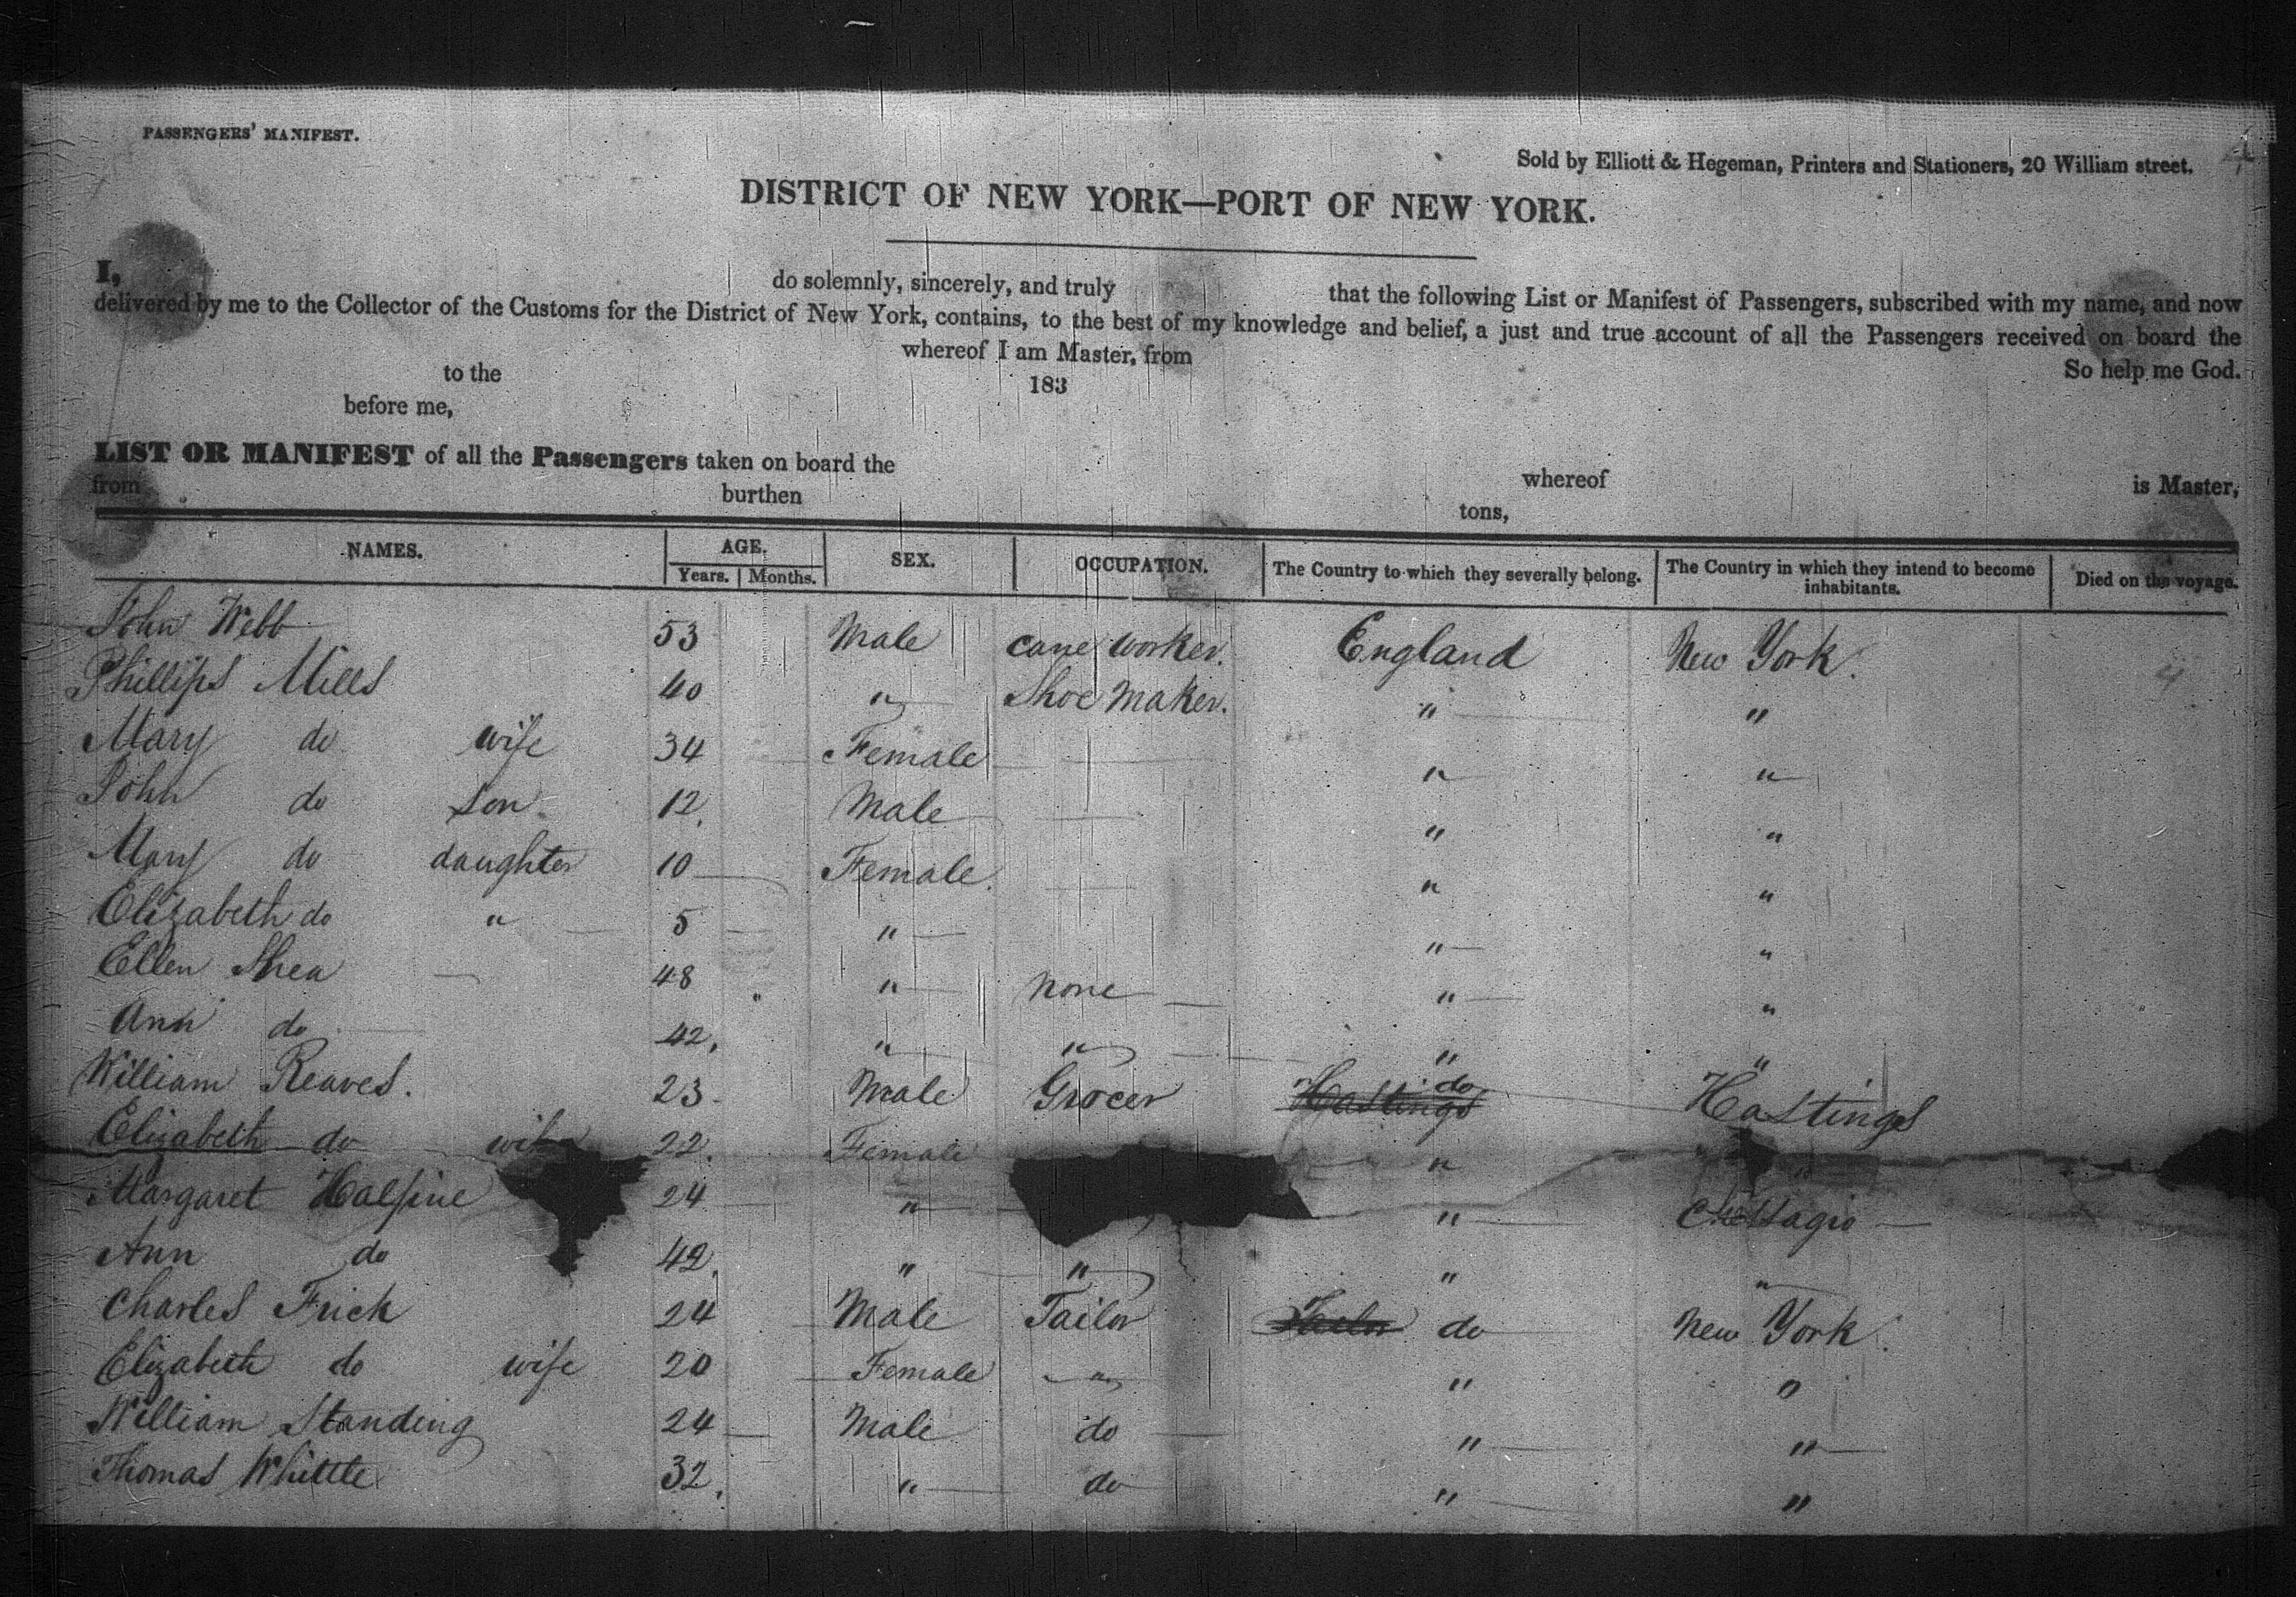 PASSENGERS' MANIFEST.
Sold by Elliott & Hegeman, Printers and Stationers, 20 William street.
DISTRICT OF NEW YORK—PORT OF NEW YORK.
I, do solemnly, sincerely, and truly that the following List or Manifest of Passengers, subscribed with my name, and now
delivered by me to the Collector of the Customs for the District of New York, contains, to the best of my knowledge and belief, a just and true account of all the Passengers received on board the
whereof I am Master, from
to the 183 So help me God.
before me,
LIST OR MANIFEST of all the Passengers taken on board the whereof is Master,
from burthen tons,
NAMES. AGE. SEX. OCCUPATION. The Country to which they severally belong. The Country in which they intend to become inhabitants. Died on the voyage.
Years. Months.
John Webb 53 Male cane worker. England New York.
Phillips Mills 40 " Shoe Maker. " "
Mary do wife 34 Female " "
John do son 12. Male " "
Mary do daughter 10 Female. " "
Elizabeth do " 5 " " "
Ellen Shea 48 " " none " "
Ann do 42. " " " "
William Reaves. 23 Male Grocer Hastings do Hastings
Elizabeth do wife 22. Female " "
Margaret Halpine 24 " "
Ann do 42. " " " "
Charles Frick 24 Male Tailor Tailor do New York.
Elizabeth do wife 20 Female " " "
William Standing 24 Male do " "
Thomas Whittle 32. " do " "